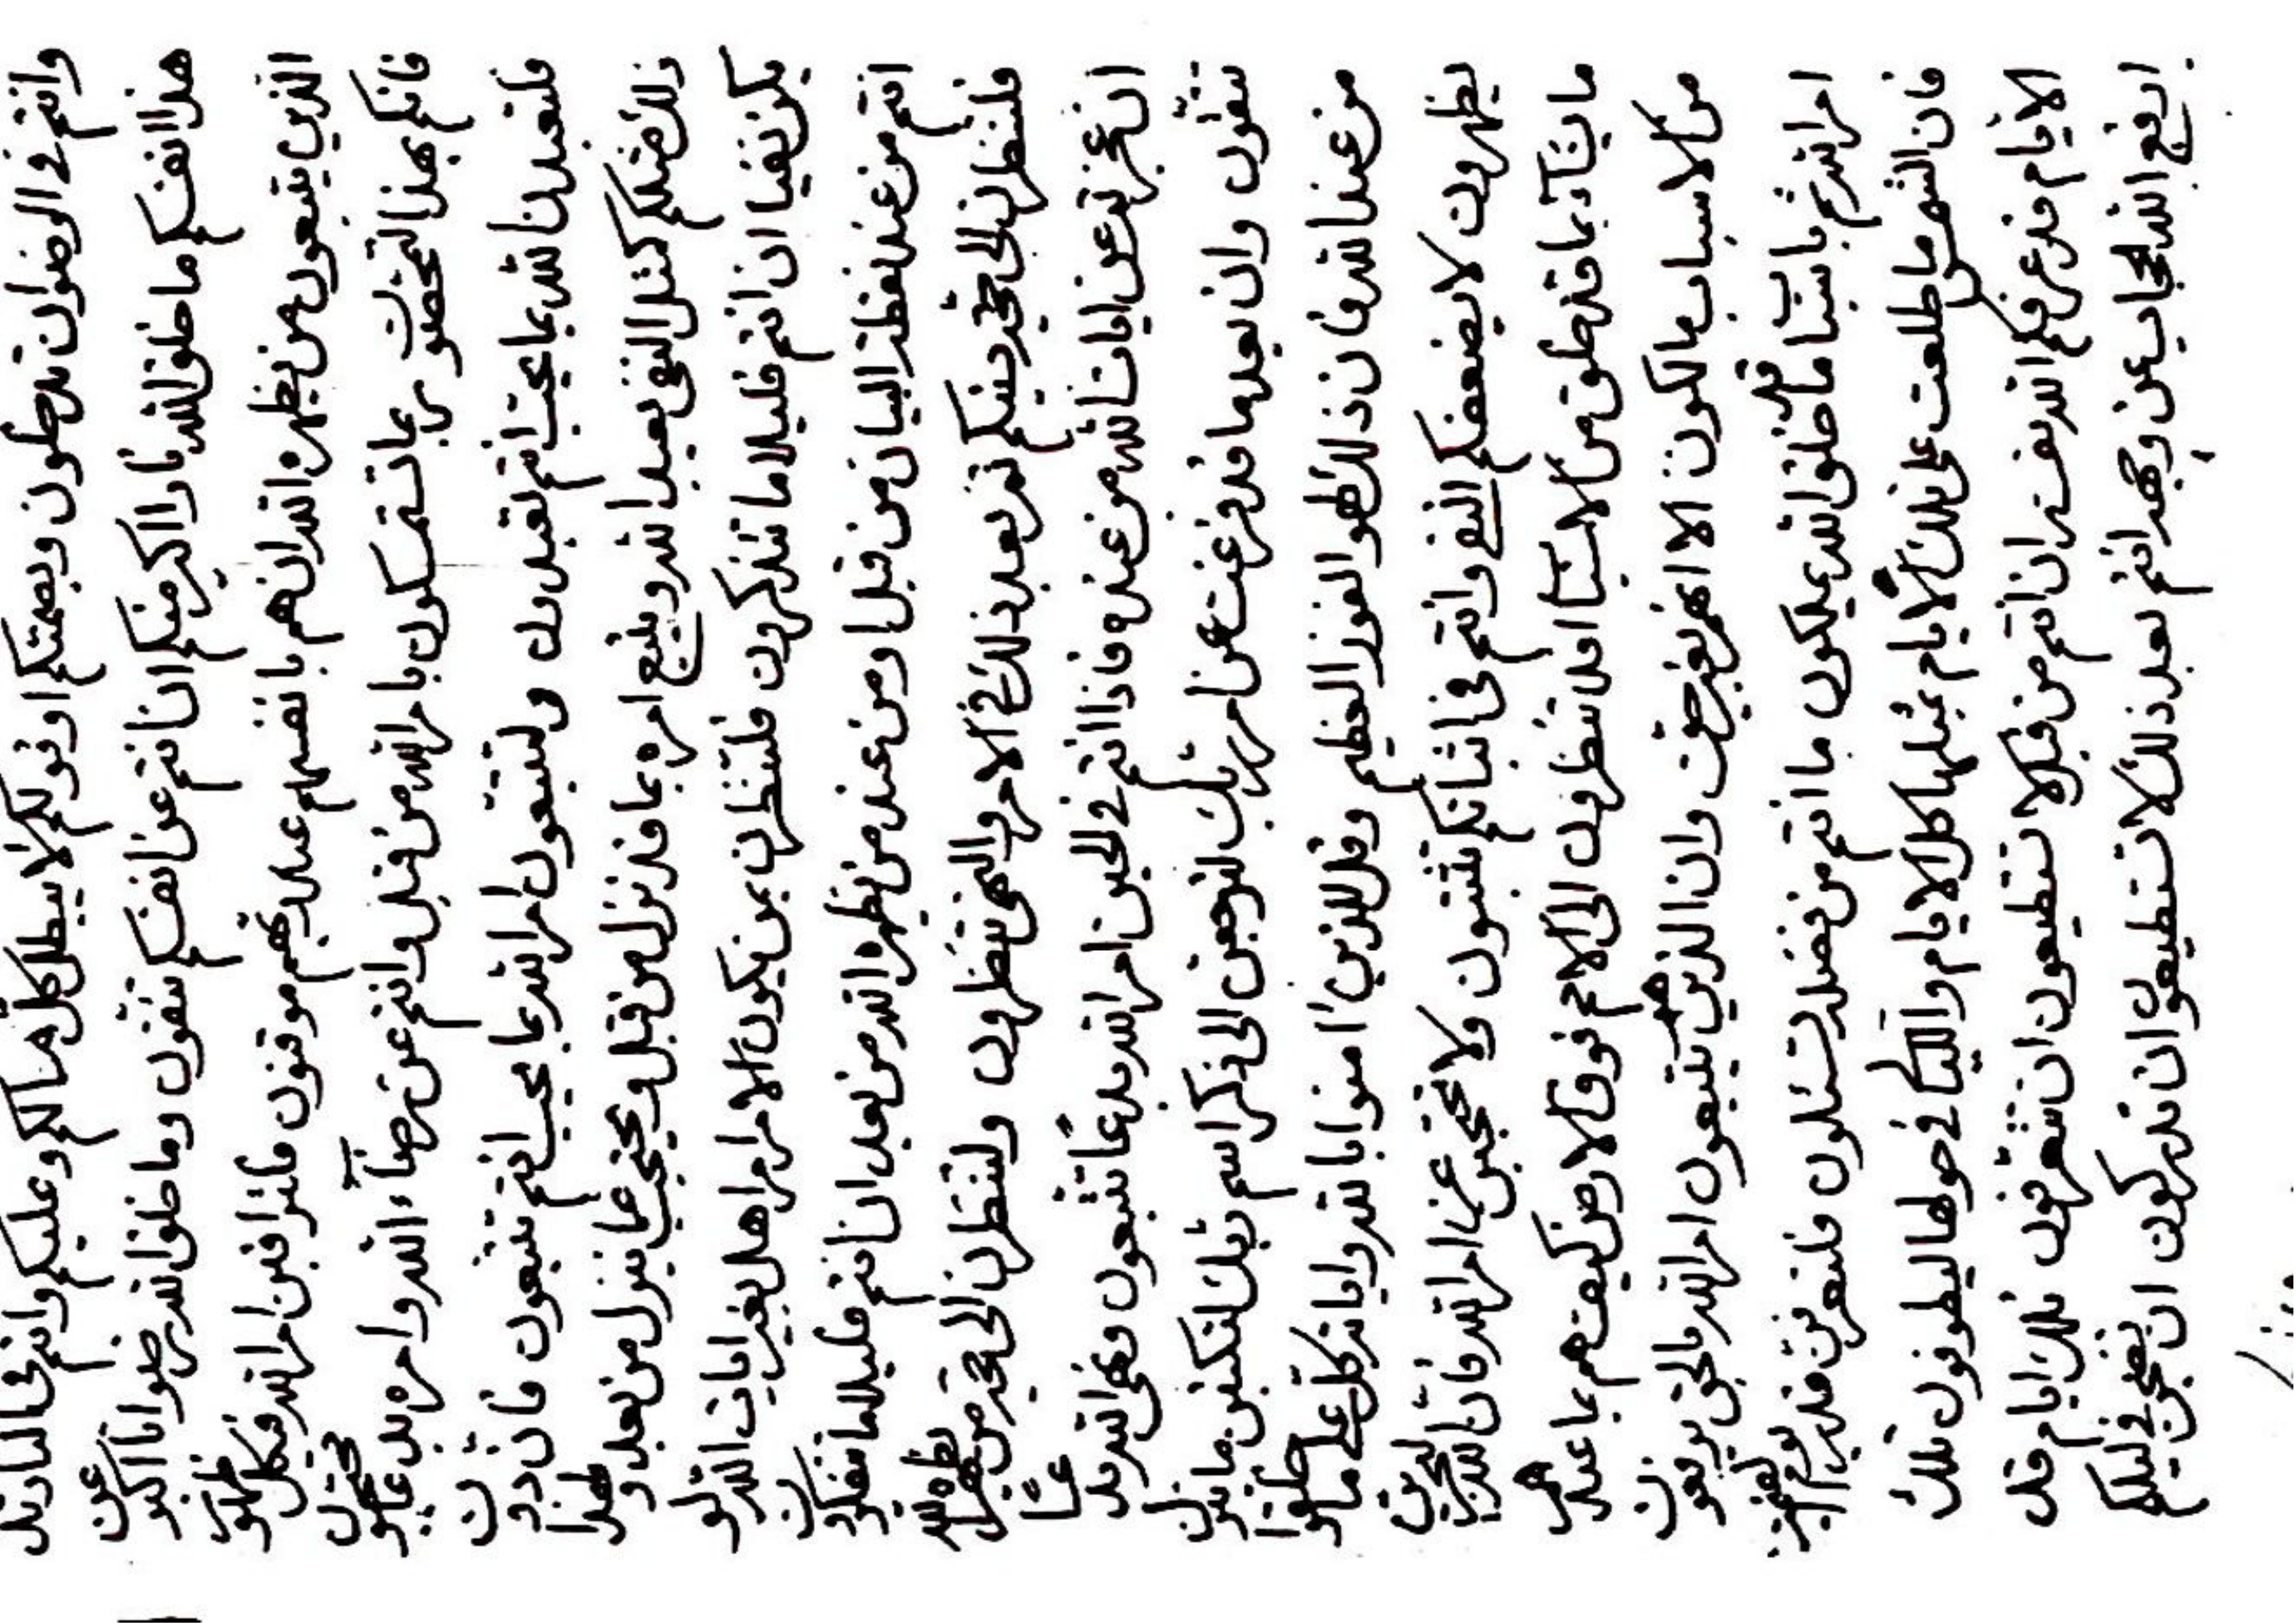 وانتم فى الرضوان تدخلون وبصمتكم او قولكم لا يبطل كل ما لكم وعليكم وانتم فى النار تد
هذا انفسكم ما خلق الله نارا اكبر منكم ان انتم عن انفسكم تتقون وما خلق الله رضوانا اكبر عن
الذين يتبعون من يظهره الله ان هم بانفسهم عند ربهم موقنون فلتراقبن امر الله فكل
فانكم بهذا بما تستمسكون بامر الله من قبل وانتم عن رضاء الله وامره بدعا محتجبون
فلتعبدن الله بما يحب انتم تعبدون ولتتبعون امر الله بما يحب انتم تتبعون فان دون
ذلك مثلكم كمثل الذى يعبد الله ويتبع امره بما قد نزل من قبل ويحتجب عما ينزل من بعد وهذا
يكن نفيا ان انتم قليلا ما تتذكرون فلتنظرن بمن يكون الامر امرا هل بغير ايات الله
انتم من عند نقطة البيان من قبل او من عند من يظهره الله من بعد ان انتم قليلا ما تتفكرون
فلتنظرن الى حجة دينكم ثم بعد ذلك فى الامر والنهى تنظرون ولتنظرن الى حجة من يظهره الله
ان عجزتم عن ايات الله من عنده فاذا انتم فى الحين امر الله بدعا تتبعون ونهى الله بدعا
تتقون وان بعد ما قد فرغت عن امر ربك لتوجهن الى ذكر اسم ربك لتكتبن ما نزل
من عند الله فان ذلك لهو الفوز العظيم وقل للذين امنوا بالله واياته كل على ما خلقوا
يظهرون لا يضعفكم النفى وانتم فى اثباتكم تثبتون ولا تحتجبن عن امر الله فان
ما يشاء بما قد خلق من الاشياء افلا تنظرون الى الامم فوق الارض كيف هم بما عندهم
من الاسباب مالكون الا انهم بغير حق وان الذين هم يتبعون امر الله بالحق يرفعون
امر الله ثم باسباب ما قد خلق الله يملكون ما انتم من فضله تسئلون فلتعرفن قدر يوم
فان الشمس ما طلعت على تلك الايام بمثلها كل الايام والليالى فى حولها ليطوفون تلك
الايام قد عرفكم الله نفسه ان انتم من قبل لا تستطيعون ان تتعرفون تلك ايام قد
ارفع الله الحجاب عن وجهه انتم بعد ذلك لا تستطيعون ان تدركون ان يفتحن فى ليلكم